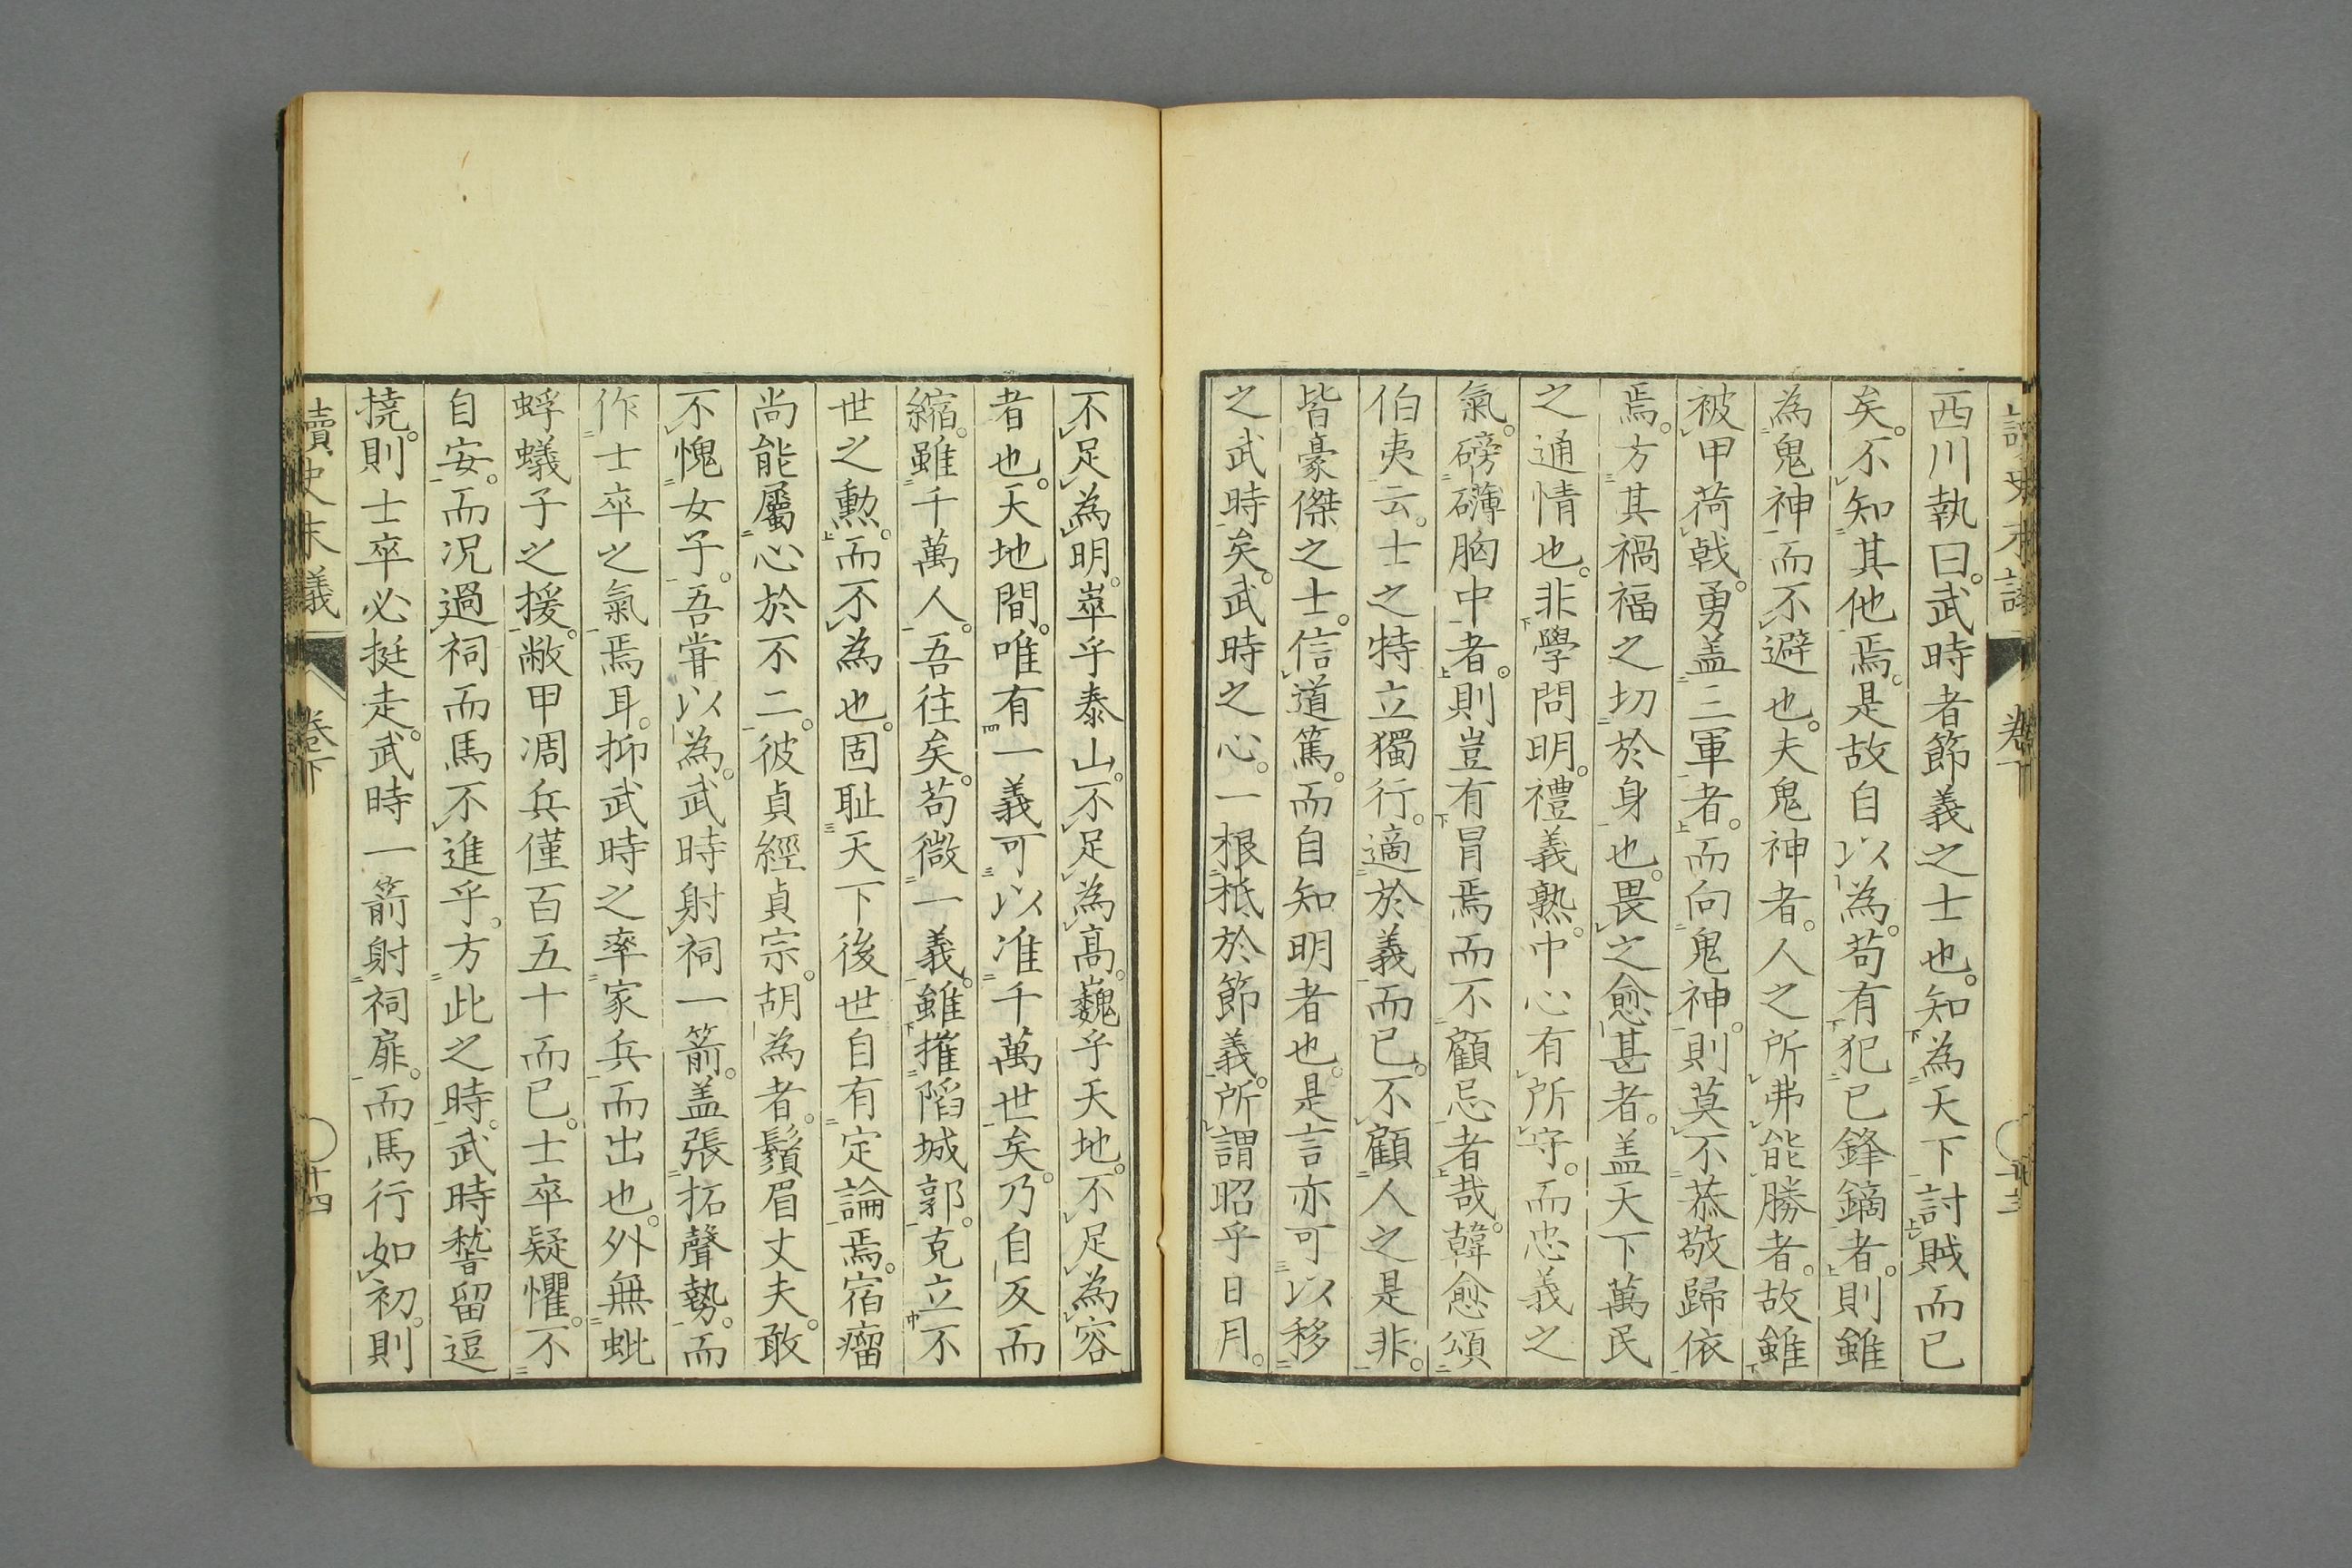 西川執曰。武時者節義之士也。知為天下討賊而已
矣。不知其他焉。是故自以為。苟有犯已鋒鏑者。則雖
為鬼神而不避也。夫鬼神者。人之所弗能勝者。故雖
被甲荷戟。勇盖三軍者。而向鬼神。則莫不恭敬歸依
焉。方其禍福之切於身也。畏之愈甚者。盖天下萬民
之通情也。非學問明。禮義熟。中心有所守。而忠義之
氣。磅礴胸中者。則豈有冒焉而不顧忌者哉。韓愈頌
伯夷云。士之特立獨行。適於義而已。不顧人之是非。
皆豪傑之士。信道篤。而自知明者也。是言亦可以移
之武時矣。武時之心。一根柢於節義。所謂昭乎日月。
不足為明。崒乎泰山。不足為高。巍乎天地。不足為容
者也。天地間。唯有一義可以准千萬世矣。乃自反而
縮。雖千萬人。吾往矣。苟微一義。雖摧陷城郭。克立不
世之勲。而不為也。固耻天下後世自有定論焉。宿瘤
尚能屬心於不二。彼貞經貞宗。胡為者。鬚眉丈夫。敢
不愧女子。吾嘗以為。武時射祠一箭。盖張拓聲勢。而
作士卒之氣焉耳。抑武時之率家兵而出也。外無蚍
蜉蟻子之援。敝甲凋兵僅百五十而已。士卒疑懼。不
自安。而況過祠而馬不進乎。方此之時。武時嵆留逗
撓。則士卒必挺走。武時一箭射祠扉。而馬行如初。則
讀史末議
卷下
十四